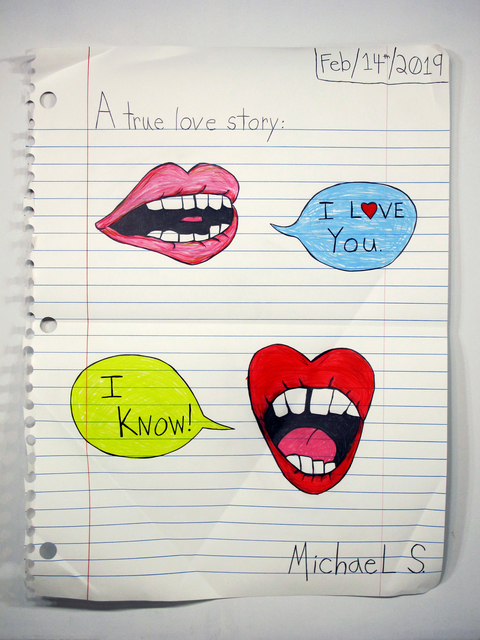 Feb/14th/2019
A true love story:
I L❤VE
You.
I
KNOW!
Michael S.